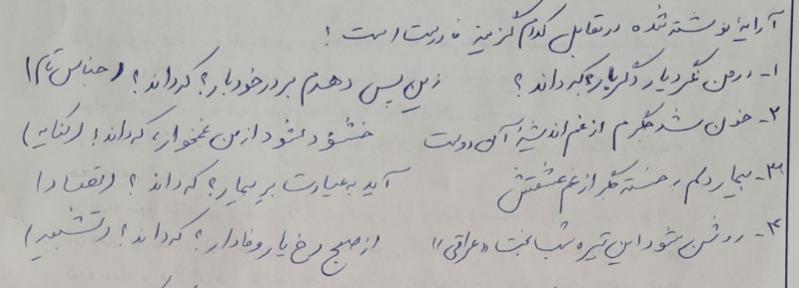 آرایهٔ نوشته شده در مقابل کدام گزینه نادرست است؟
۱- در من نگرد یار دگر بار؟ که داند؟ زین پس دهدم بر در خود بار؟ که داند؟ (جناس تام)
۲- خون شد جگرم از غم اندیشهٔ آن دوست خشنود شود از من غمخوار، که داند؟ (کنایه)
۳- بیمار دلم، خسته جگر از غم عشقش آید به عیادت بر بیمار؟ که داند؟ (تضاد)
۴- روشن شود این تیره شب بخت «عراقی» از صبح رخ یار وفادار؟ که داند؟ (تشبیه)